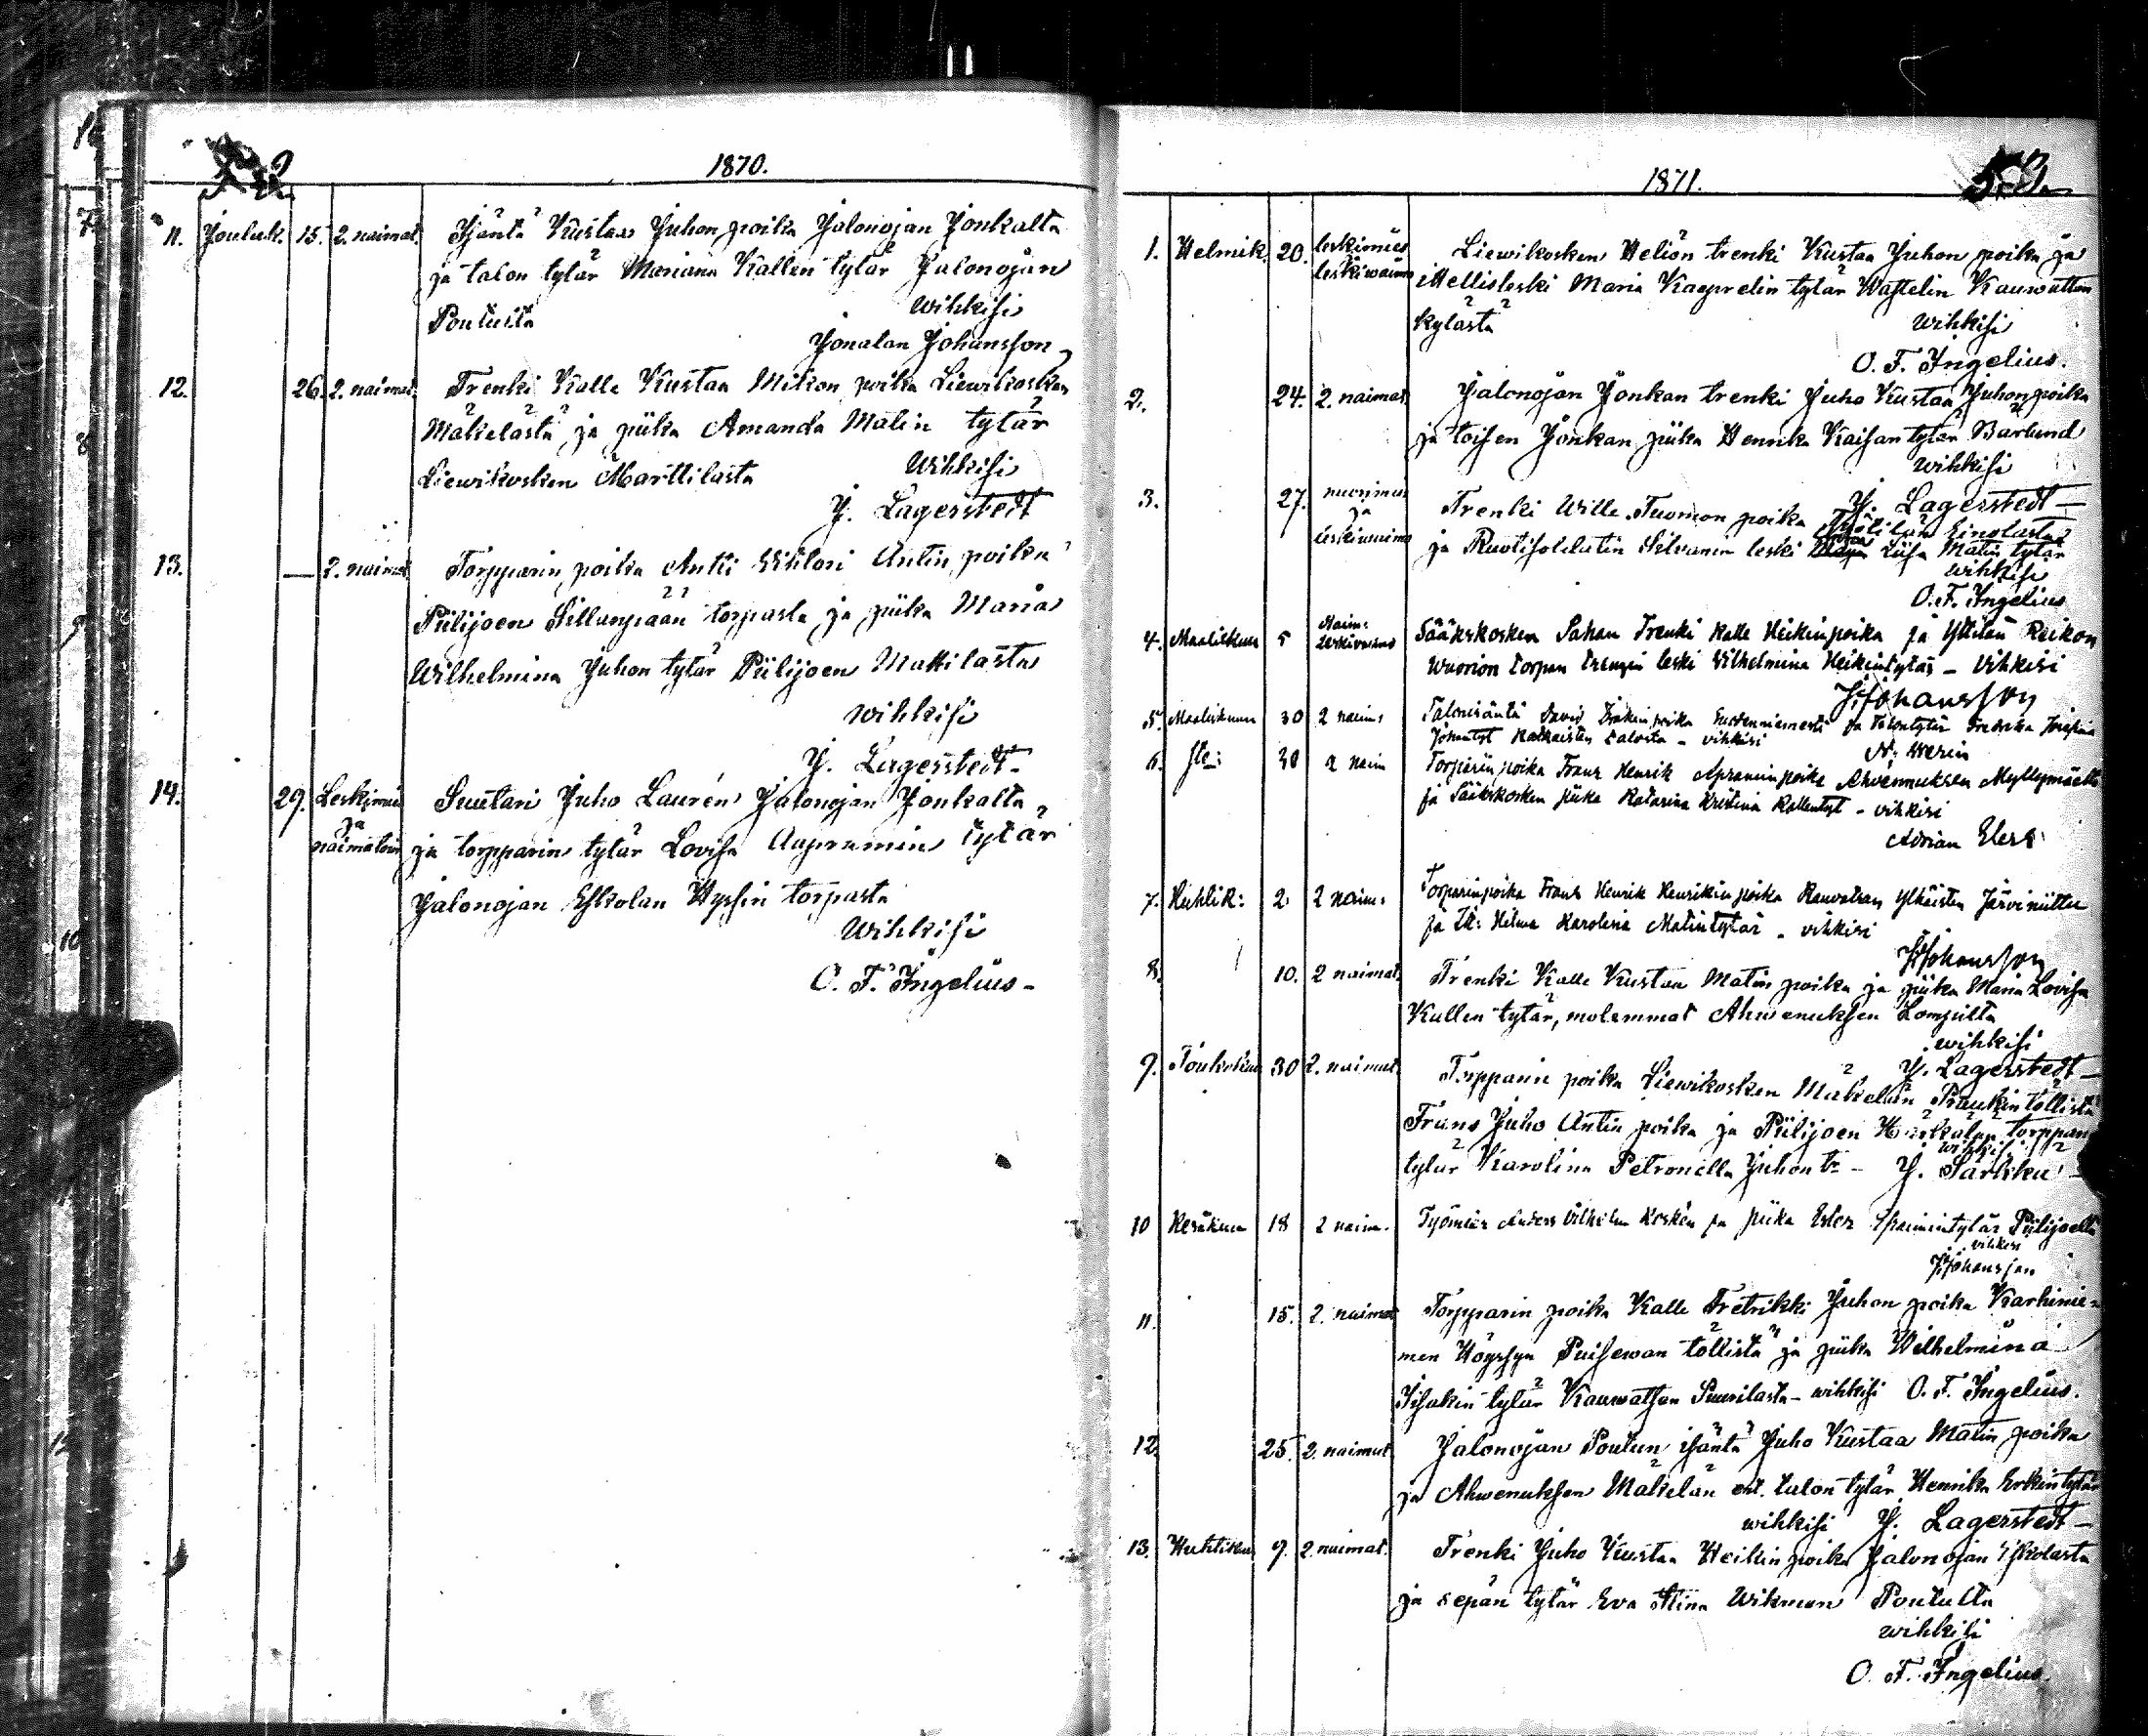 1870.
11. Jouluk. 15. 2. naimat. Isäntä Kustaa Juhon poika Jalonojan Jonkalta
ja talon tytär Mariana Kallen tytär Jalonojan
Poutusta wihkisi
Jonatan Johansson
12. 26. 2. naimat. Trenki Kalle Kustaa Mikon poika Liewikosken
Mäkelästä ja piika Amanda Matin tytär
Liewikosken Marttilasta Wihkisi
J. Lagerstedt
13. — 2. naimat. Torpparin poika Antti Wihtori Antin poika
Piilijoen Sillanpään torpasta ja piika Maria
Wilhelmina Juhon tytär Piilijoen Mattilasta
wihkisi
J. Lagerstedt
14. 29. Leskimies ja naimatoin Suutari Juho Laurén Jalonojan Jonkalta
ja torpparin tytär Lovisa Aapramin tytär
Jalonojan Eskolan torpasta
Wihkisi
O. F. Ingelius
1871.
53.
1. Helmik. 20. leskimies leskiwaimo Liewikosken Heliön trenki Kustaa Juhon poika ja
itellisleski Maria Kaaprelin tytär Kauwattan
kylästä wihkisi
O. F. Ingelius.
2. 24. 2. naimat. Jalonojan Jonkan trenki Juho Kustaa Juhon poika
ja toisen Jonkan piika Henrika Kaisan tytär Barlund
wihkisi
J. Lagerstedt
3. 27. nuorimies ja leskiwaimo Trenki Wille Tuomon poika Einolasta
ja Ruotisoldatin Silvanin leski Liisa Matin tytär
wihkisi
O. F. Ingelius
4. Maaliskuu 5 Naim: Leskivaimo Sääkskosken Sahan Trenki Kalle Heikinpoika ja Yttilän Reikon
Wuorion torpan trengin leski Wilhelmina Heikintytär – vihkisi
J. Johansson
5. Maaliskuu 30 2 naim: Talonisäntä David poika Suodenniemestä ja Talontytär Fredrika Josefina
Johantyt talosta – vihkisi
6. 30 2 naim Torpparin poika Frans Henrik Apraminpoika Ahvenuksen Myllymäeltä
ja Sääkskosken piika Katarina Kristina Kallentyt – vihkisi
Adrian Elers
7. Huhtik: 2 2 naim: Torparinpoika Frans Henrik Henrikinpoika Ylistaisten Järviniittu
ja Helma Karolina Matintytär – vihkisi
J. Johansson
8. 10. 2 naimat. Trenki Kalle Kustaa Matin poika ja piika Maria Lovisa
Kallen tytär, molemmat Ahwenuksen
wihkisi
J. Lagerstedt
9. Toukokuu 30 2. naimat. Torpparin poika Liewikosken Mäkelän töllistä
Frans Juho Antin poika ja Piilijoen Härkälän torppan
wihkisi
tytär Karolina Petronella Juhon tr – J. Särkkä
10 Kesäkuu 18 2 naim. Työmies Anders Vilhelm Koskén ja piika Ester Piilijoelta
vihkisi
J. Johansson
11. 15. 2. naimat Torpparin poika Kalle Fretrikki Juhon poika Karhinie-
men Höyssyn töllistä ja piika Wilhelmina
Isakin tytär Kauwatsan Suurilasta – wihkisi O. F. Ingelius.
12. 25. 2. naimat. Jalonojan Poutun isäntä Juho Kustaa Matin poika
ja Ahwenuksen Mäkelän ent. talon tytär Henrika Erkin tytär
wihkisi J. Lagerstedt
13. Huhtikuu 9. 2. naimat. Trenki Juho Kustaa Heikin poika Jalonojan Eskolasta
ja sepän tytär Eva Stina Wikman Poutulta
wihkisi
O. F. Ingelius.